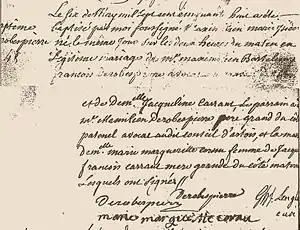 Le six de May mil sept cent cinquante huit a été
baptisé par moy soussigné Marie isidore
né le même jour sur les deux heures du matin en
Légitime mariage de Mr maximilien Barthélemy
françois Derobespierre avocat au
et de Demelle Jacqueline Carraut, Le parrain a
Mr Maximilien Derobespierre père grand du côté
paternel avocat audit conseil d'artois et la ma
Demelle marie marguerite cornu femme de Jacque
françois carraut mere grande du côté maternel
Lesquels ont signés
Derobespierre
Derobespierre
marie marguerite cornu